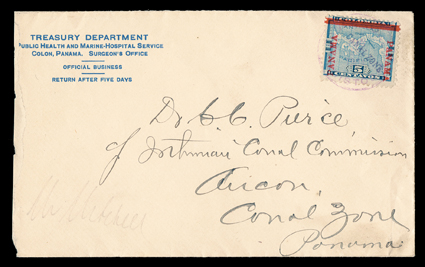 TREASURY DEPARTMENT
PUBLIC HEALTH AND MARINE-HOSPITAL SERVICE
COLON, PANAMA. SURGEON'S OFFICE
OFFICIAL BUSINESS
RETURN AFTER FIVE DAYS
PANAMA PANAMA
5
CENTAVOS
Dr. C. C. Pierce
of Isthmian Canal Commission
Ancon,
Canal Zone
Panama.